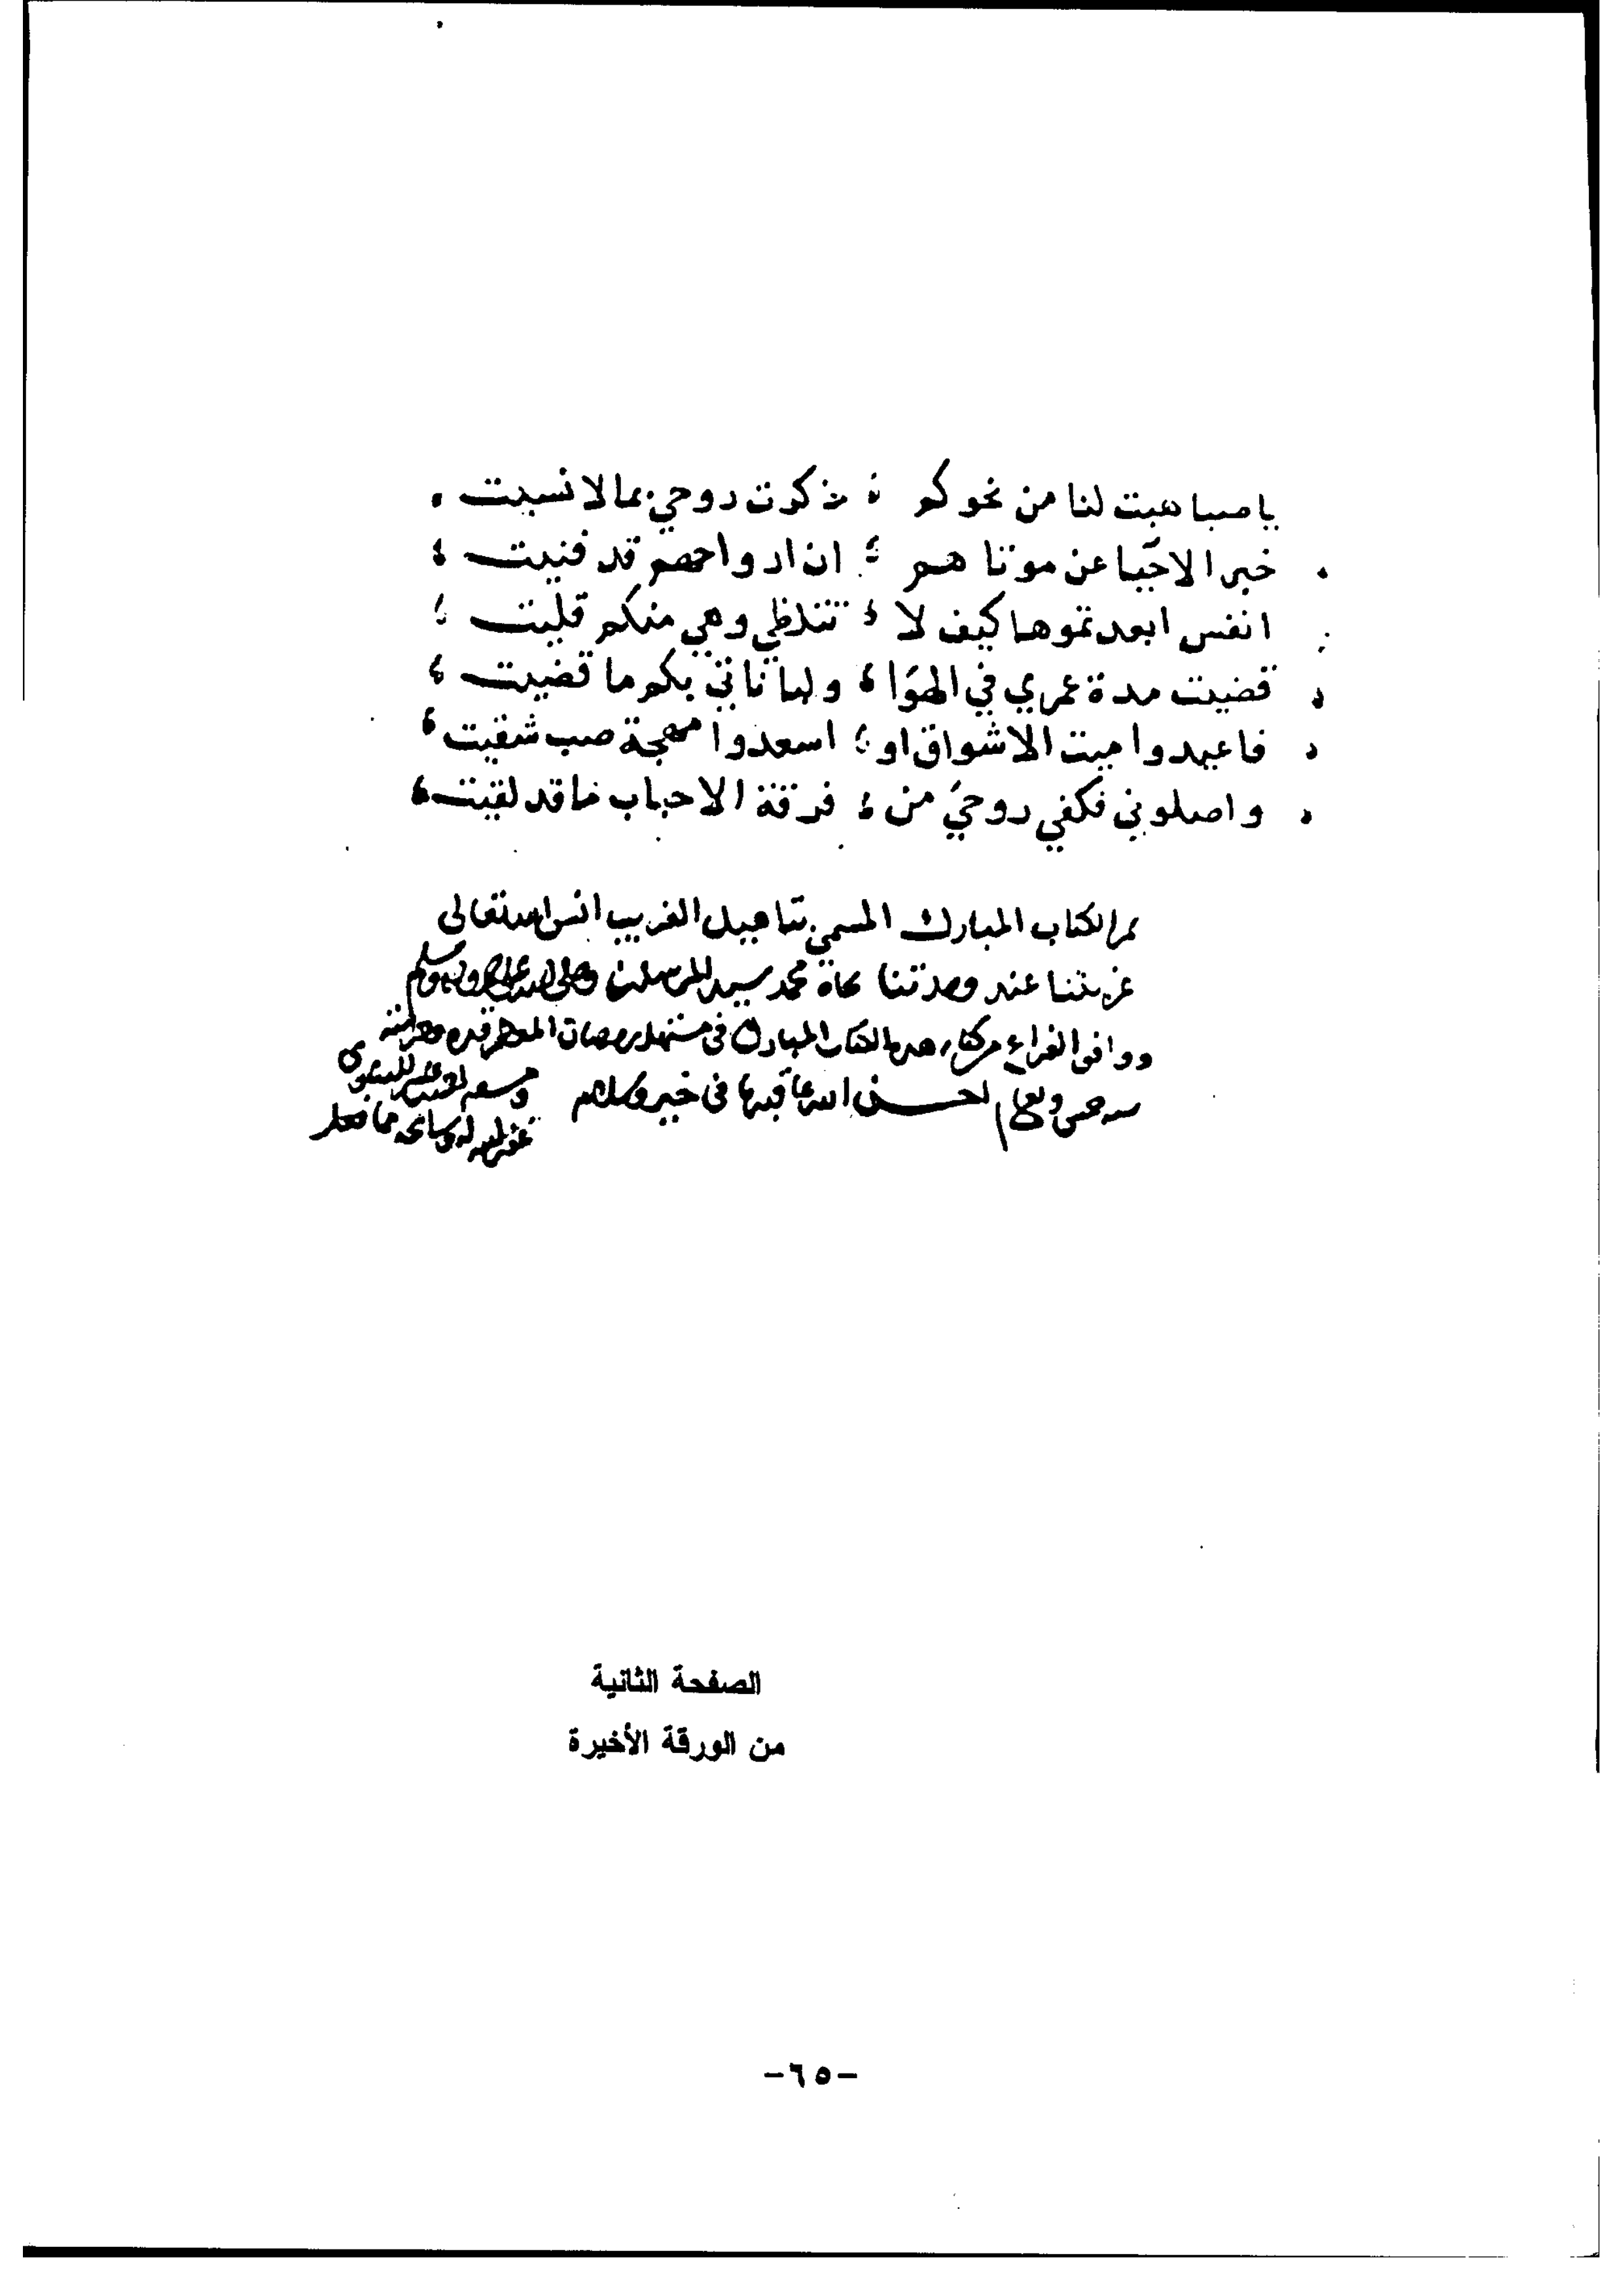 يا صبا هبت لنا من نحو كم ذكرت روحي بما لا نسيت
خبر الاحيا عن موتا هم ان ارواحهم قد فنيت
انفس ابعد تموها كيف لا تتلظي وهي منكم قليت
قضيت مدة عمري في الهوا ولبا ناتي بكم ما قضيت
فاعيدوا ميت الاشواق او اسعدوا مهجة صب شقيت
واصلوني فكفي روحي من فرقة الاحباب ما قد لقيت
تم الكتاب المبارك المسمي بتاهيل الغريب انس الله تعالى
غربتنا عند وحدتنا بجاه محمد سيد المرسلين وصلى الله على وسلم
ووافق الفراغ من كتابة هذا الكتاب المبارك في مستهل رمضان المعظم قدره وحرمته
سنه احسن الله عاقبتها في خير وسلام
غفر الله له
الصفحة الثانية
من الورقة الأخيرة
-٦٥-